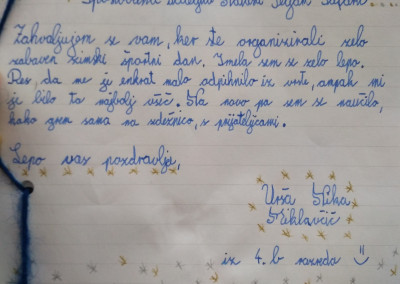 Spoštovana
Zahvaljujem se vam, ker ste organizirali zelo
zabaven zimski športni dan. Imela sem se zelo lepo.
Res, da me je enkrat malo odpihnilo iz vrste, ampak mi
je bilo to najbolj všeč. Na novo pa sem se naučila,
kako grem sama na sedežnico, s prijateljicami.
Lepo vas pozdravlja,
Urša Nika
Miklavčič
iz 4. b razreda